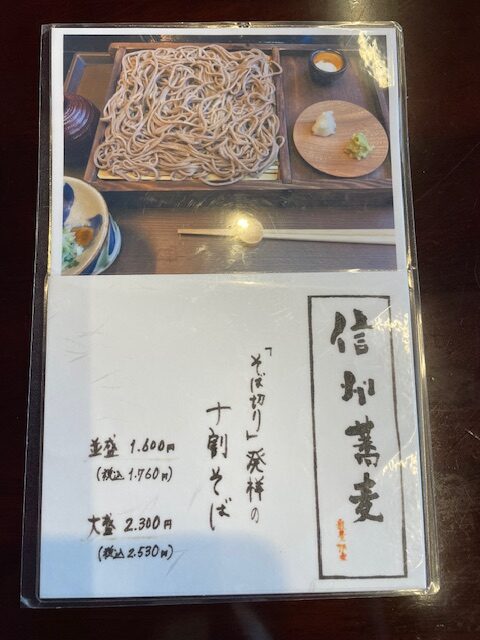 信州蕎麦
「そば切り」発祥の
十割そば
並盛 1.600円
(税込 1.760円)
大盛 2.300円
(税込 2.530円)